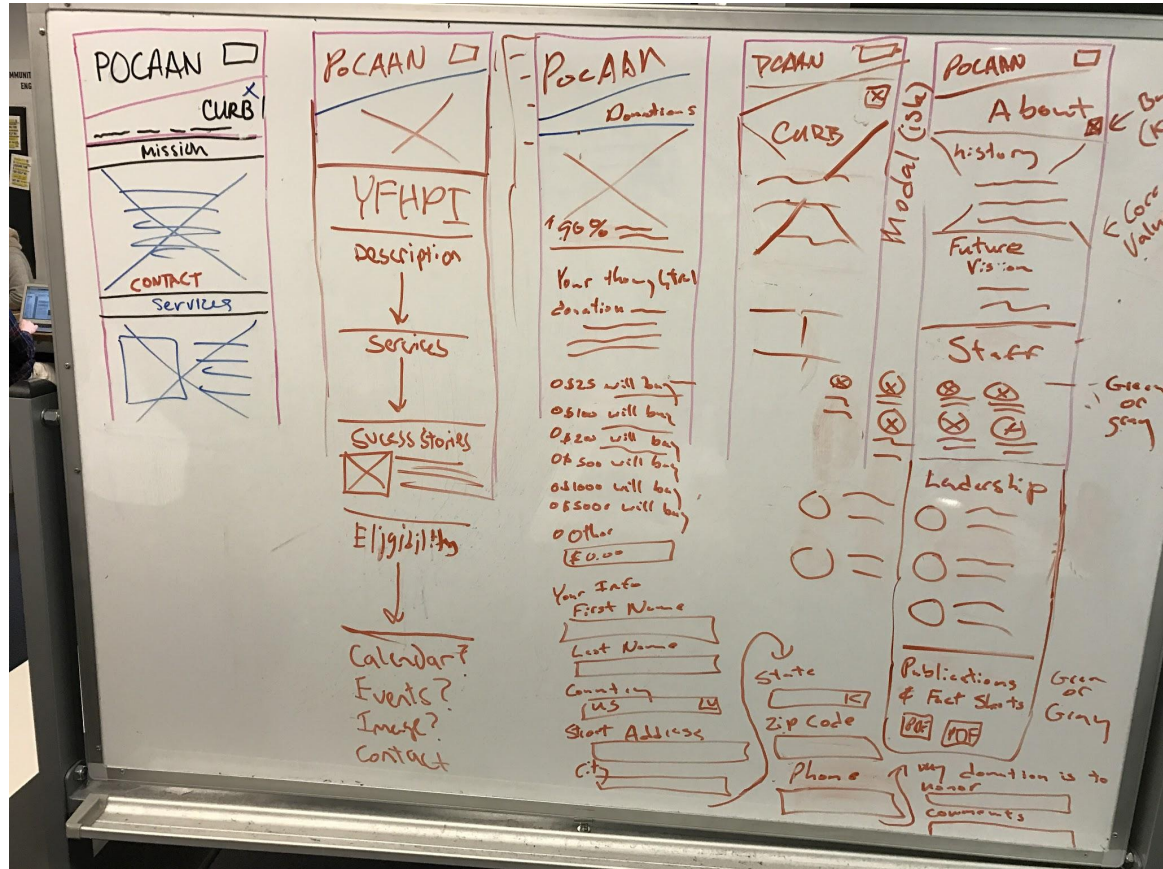 POCAAN
CURB
Mission
CONTACT
Services
POCAAN
YFHPI
Description
Services
Sucess Stories
Eligibility
Calendar?
Events?
Image?
Contact
POCAAN
Donations
90%
Your thoughtful
donation
$25 will buy
$100 will buy
$200 will buy
$500 will buy
$1000 will buy
$5000 will buy
Other
$0.00
Your Info
First Name
Last Name
Country
US
City
State
Zip Code
Phone
My donation is to
honor
comments
POCAAN
CURB
Modal
POCAAN
About
history
Future
Vision
Staff
Leadership
Publications
& Fact Sheets
PDF PDF
Core
Green
or
gray
Green
or
Gray